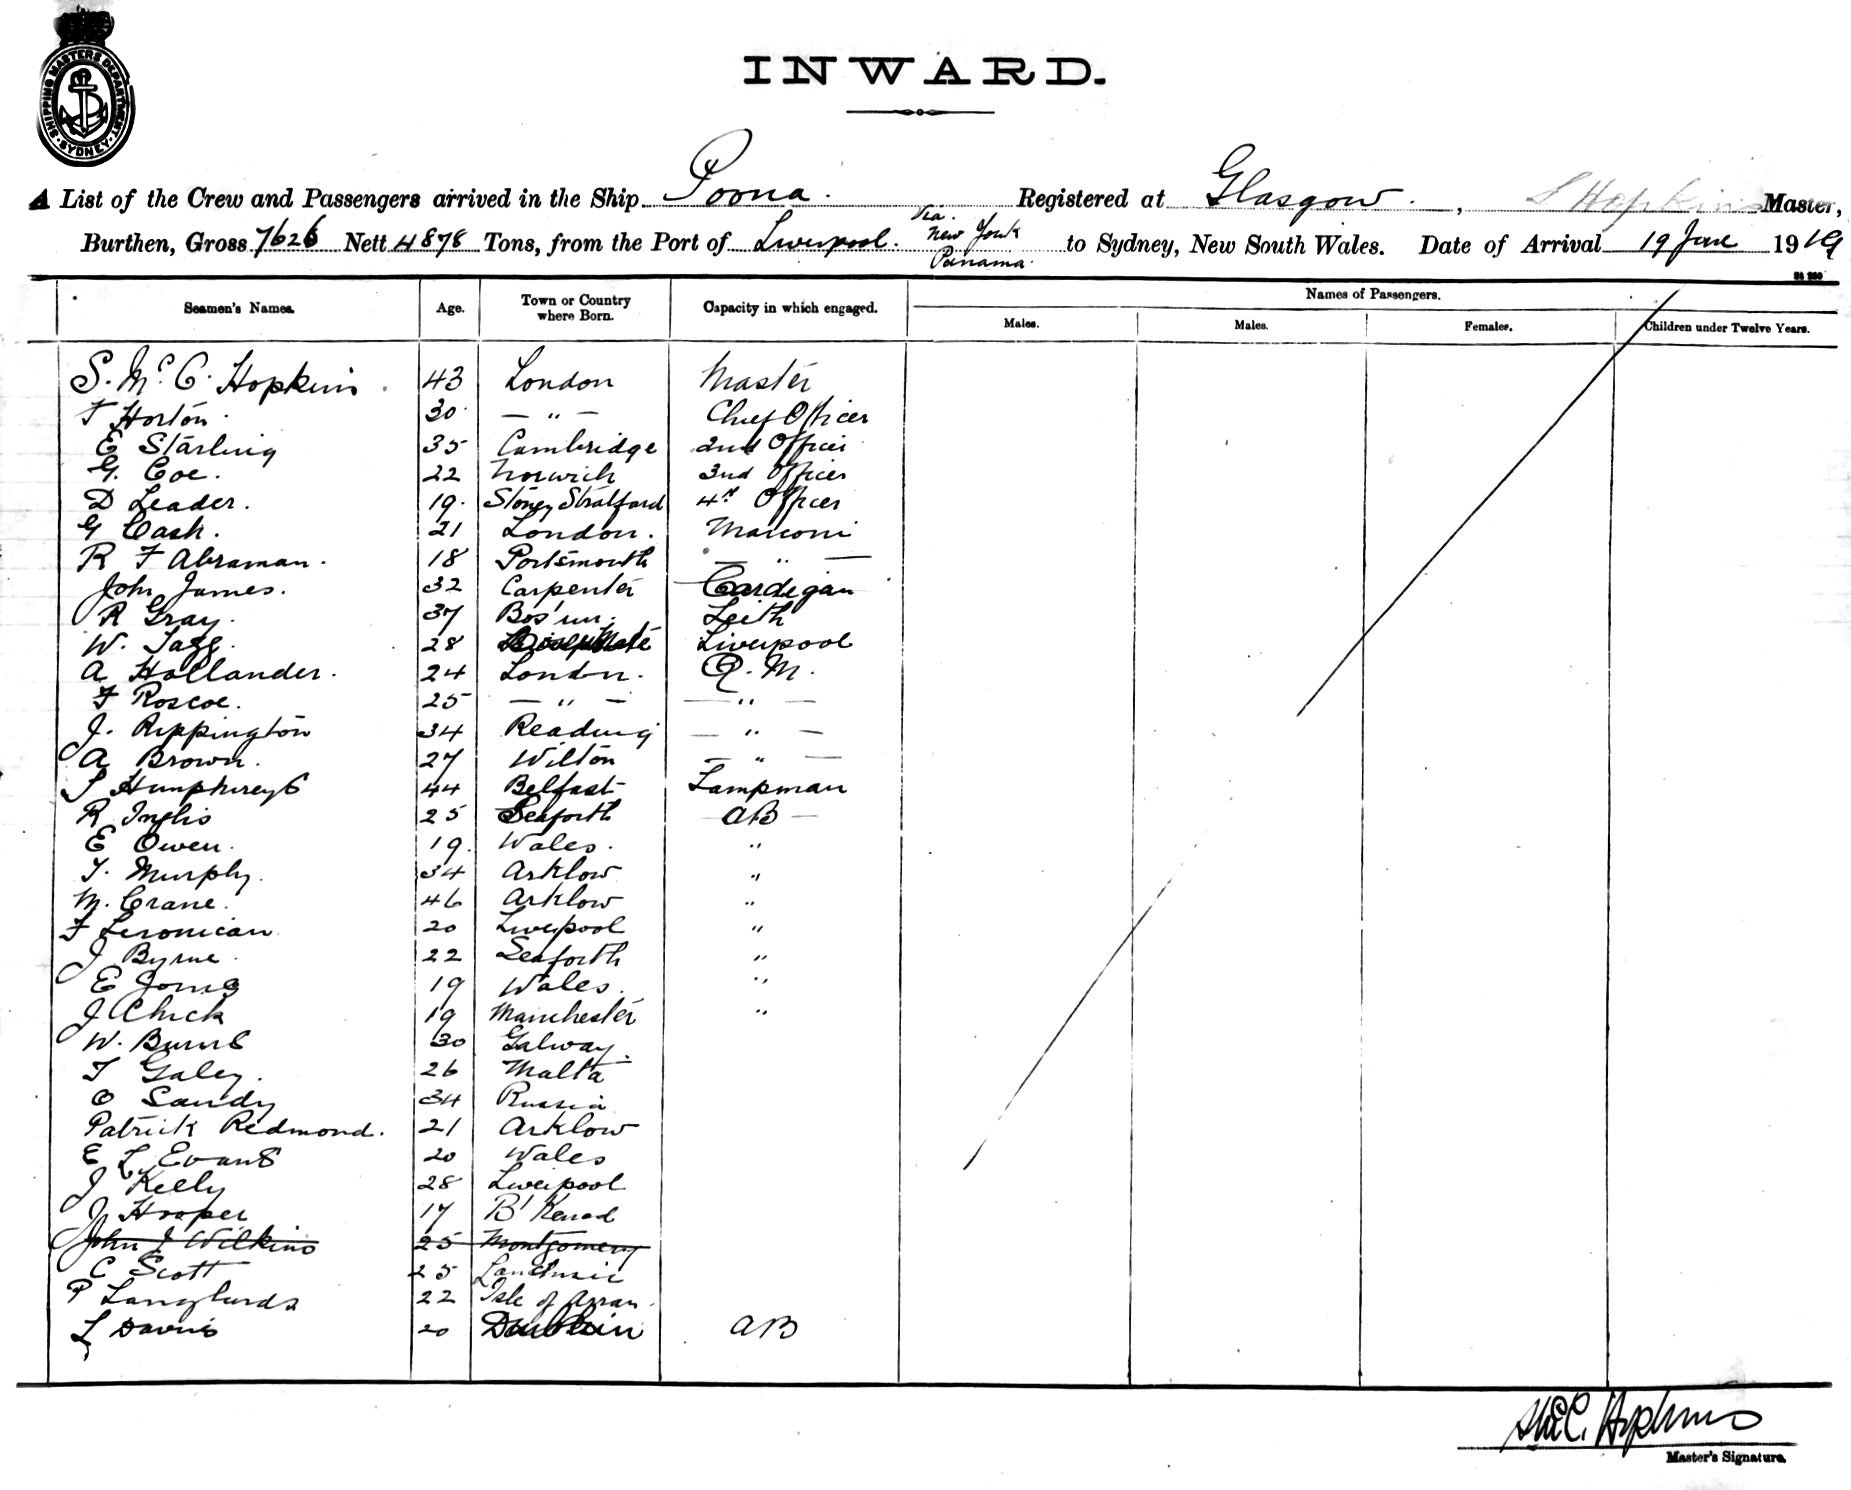 SHIPPING MASTERS DEPARTMENT
SYDNEY
INWARD.
A List of the Crew and Passengers arrived in the Ship Poona. Registered at Glasgow. , S Hopkins Master,
Via.
New York
Panama.
Burthen, Gross 7626 Nett 4878 Tons, from the Port of Liverpool. to Sydney, New South Wales. Date of Arrival 19 June 1919
Seamen's Names. Age. Town or Country where Born. Capacity in which engaged. Names of Passengers.
Males. Males. Females. Children under Twelve Years.
S. Mc C. Hopkins. 43 London Master
T Horton. 30 — " — Chief Officer
E Starling 35 Cambridge 2nd Officer
G. Coe. 22 Norwich 3nd Officer
D Leader. 19. Stoney Stratford 4th Officer
G Cash. 21 London. Marconi
R F Abraman. 18 Portsmouth — " —
John James. 32 Carpenter Cardigan
R Gray. 37 Bos'un. Leith
W. Tagg. 28 Liverpool
A Hollander. 24 London. Q. M.
F Roscoe. 25 — " — — " —
J. Rippington 34 Reading — " —
A Brown. 27 Wilton — " —
S Humphreys 44 Belfast Lampman
R Inglis 25 Seaforth AB —
E Owen. 19. Wales. "
T. Murphy. 34 Arklow "
M. Crane. 46 Arklow "
F Leronican 20 Liverpool "
J Byrne. 22 Seaforth "
E Jones 19 Wales. "
J Chick 19 Manchester "
W. Burns 30 Galway.
T Galey. 26 Malta
O Sandy 34 Russia
Patrick Redmond. 21 Arklow
E L Evans 20 Wales
J Kelly 28 Liverpool
J Hooper 17 B'Kenod
John J Wilkins 25 Montgomery
C Scott 25
P 22 Isle of Arran.
L Davris 20 AB
S Mc C. Hopkins
Master's Signature.